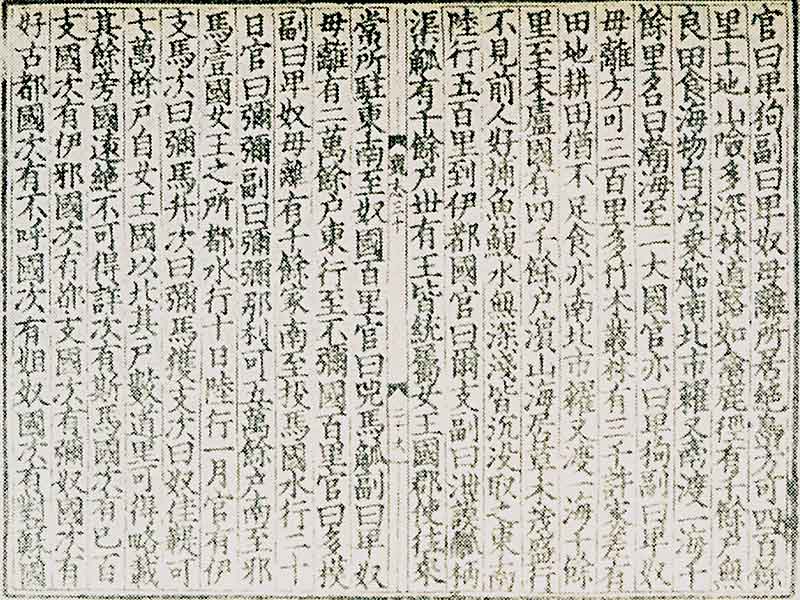 官曰卑狗副曰卑奴毋離所居絶島方可四百餘
里土地山險多深林道路如禽鹿徑有千餘户無
良田食海物自活乗船南北市糴又南渡一海千
餘里名曰瀚海至一大國官亦曰卑狗副曰卑奴
毋離方可三百里多竹木叢林有三千許家差有
田地耕田猶不足食亦南北市糴又渡一海千餘
里至末盧國有四千餘户濱山海居草木茂盛行
不見前人好捕魚鰒水無深淺皆沉没取之東南
陸行五百里到伊都國官曰爾支副曰泄謨觚柄
渠觚有千餘户丗有王皆統屬女王國郡使往來
魏志三十
常所駐東南至奴國百里官曰兕馬觚副曰卑奴
毋離有二萬餘户東行至不彌國百里官曰多模
副曰卑奴毋離有千餘家南至投馬國水行二十
日官曰彌彌副曰彌彌那利可五萬餘户南至邪
馬壹國女王之所都水行十日陸行一月官有伊
支馬次曰彌馬升次曰彌馬獲支次曰奴佳鞮可
七萬餘户自女王國以北其户數道里可得略載
其餘旁國遠絶不可得詳次有斯馬國次有已百
支國次有伊邪國次有都支國次有彌奴國次有
好古都國次有不呼國次有姐奴國次有對蘇國